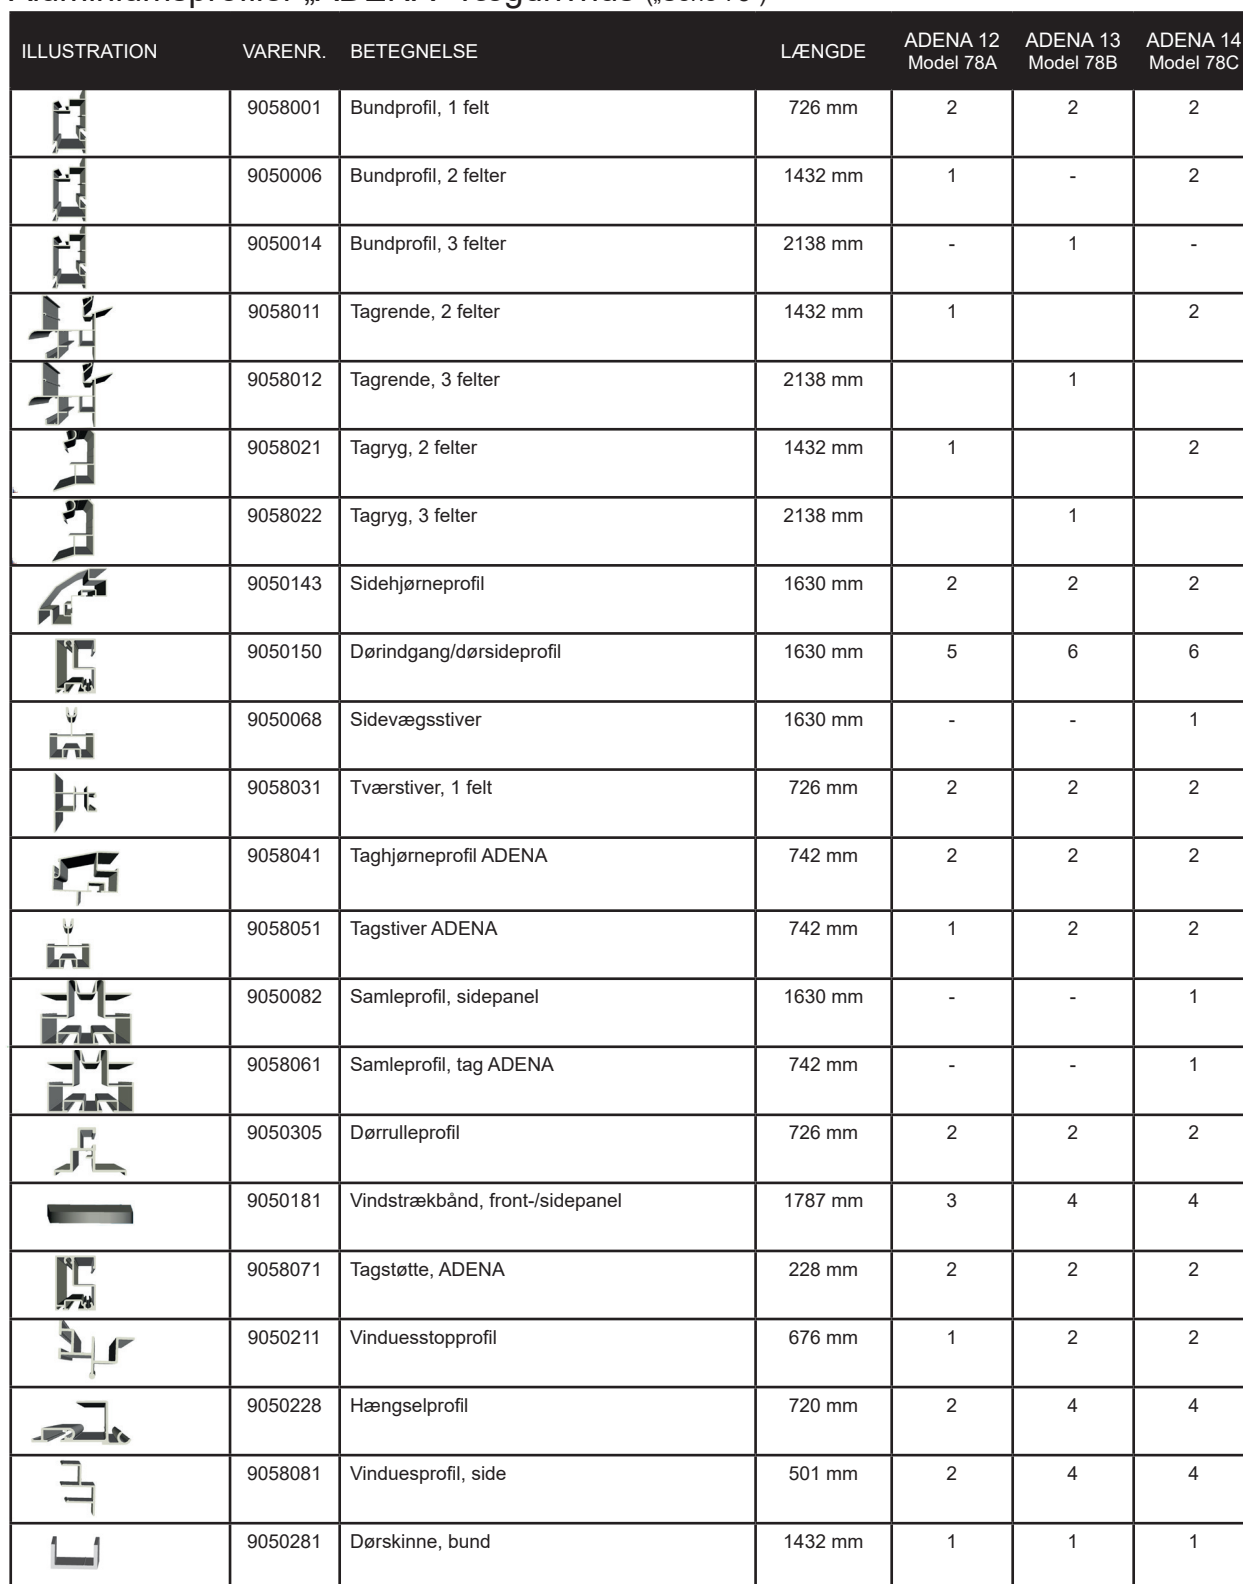 ILLUSTRATION VARENR. BETEGNELSE LÆNGDE ADENA 12 Model 78A ADENA 13 Model 78B ADENA 14 Model 78C
9058001 Bundprofil, 1 felt 726 mm 2 2 2
9050006 Bundprofil, 2 felter 1432 mm 1 - 2
9050014 Bundprofil, 3 felter 2138 mm - 1 -
9058011 Tagrende, 2 felter 1432 mm 1 2
9058012 Tagrende, 3 felter 2138 mm 1
9058021 Tagryg, 2 felter 1432 mm 1 2
9058022 Tagryg, 3 felter 2138 mm 1
9050143 Sidehjørneprofil 1630 mm 2 2 2
9050150 Dørindgang/dørsideprofil 1630 mm 5 6 6
9050068 Sidevægsstiver 1630 mm - - 1
9058031 Tværstiver, 1 felt 726 mm 2 2 2
9058041 Taghjørneprofil ADENA 742 mm 2 2 2
9058051 Tagstiver ADENA 742 mm 1 2 2
9050082 Samleprofil, sidepanel 1630 mm - - 1
9058061 Samleprofil, tag ADENA 742 mm - - 1
9050305 Dørrulleprofil 726 mm 2 2 2
9050181 Vindstrækbånd, front-/sidepanel 1787 mm 3 4 4
9058071 Tagstøtte, ADENA 228 mm 2 2 2
9050211 Vinduesstopprofil 676 mm 1 2 2
9050228 Hængselprofil 720 mm 2 4 4
9058081 Vinduesprofil, side 501 mm 2 4 4
9050281 Dørskinne, bund 1432 mm 1 1 1